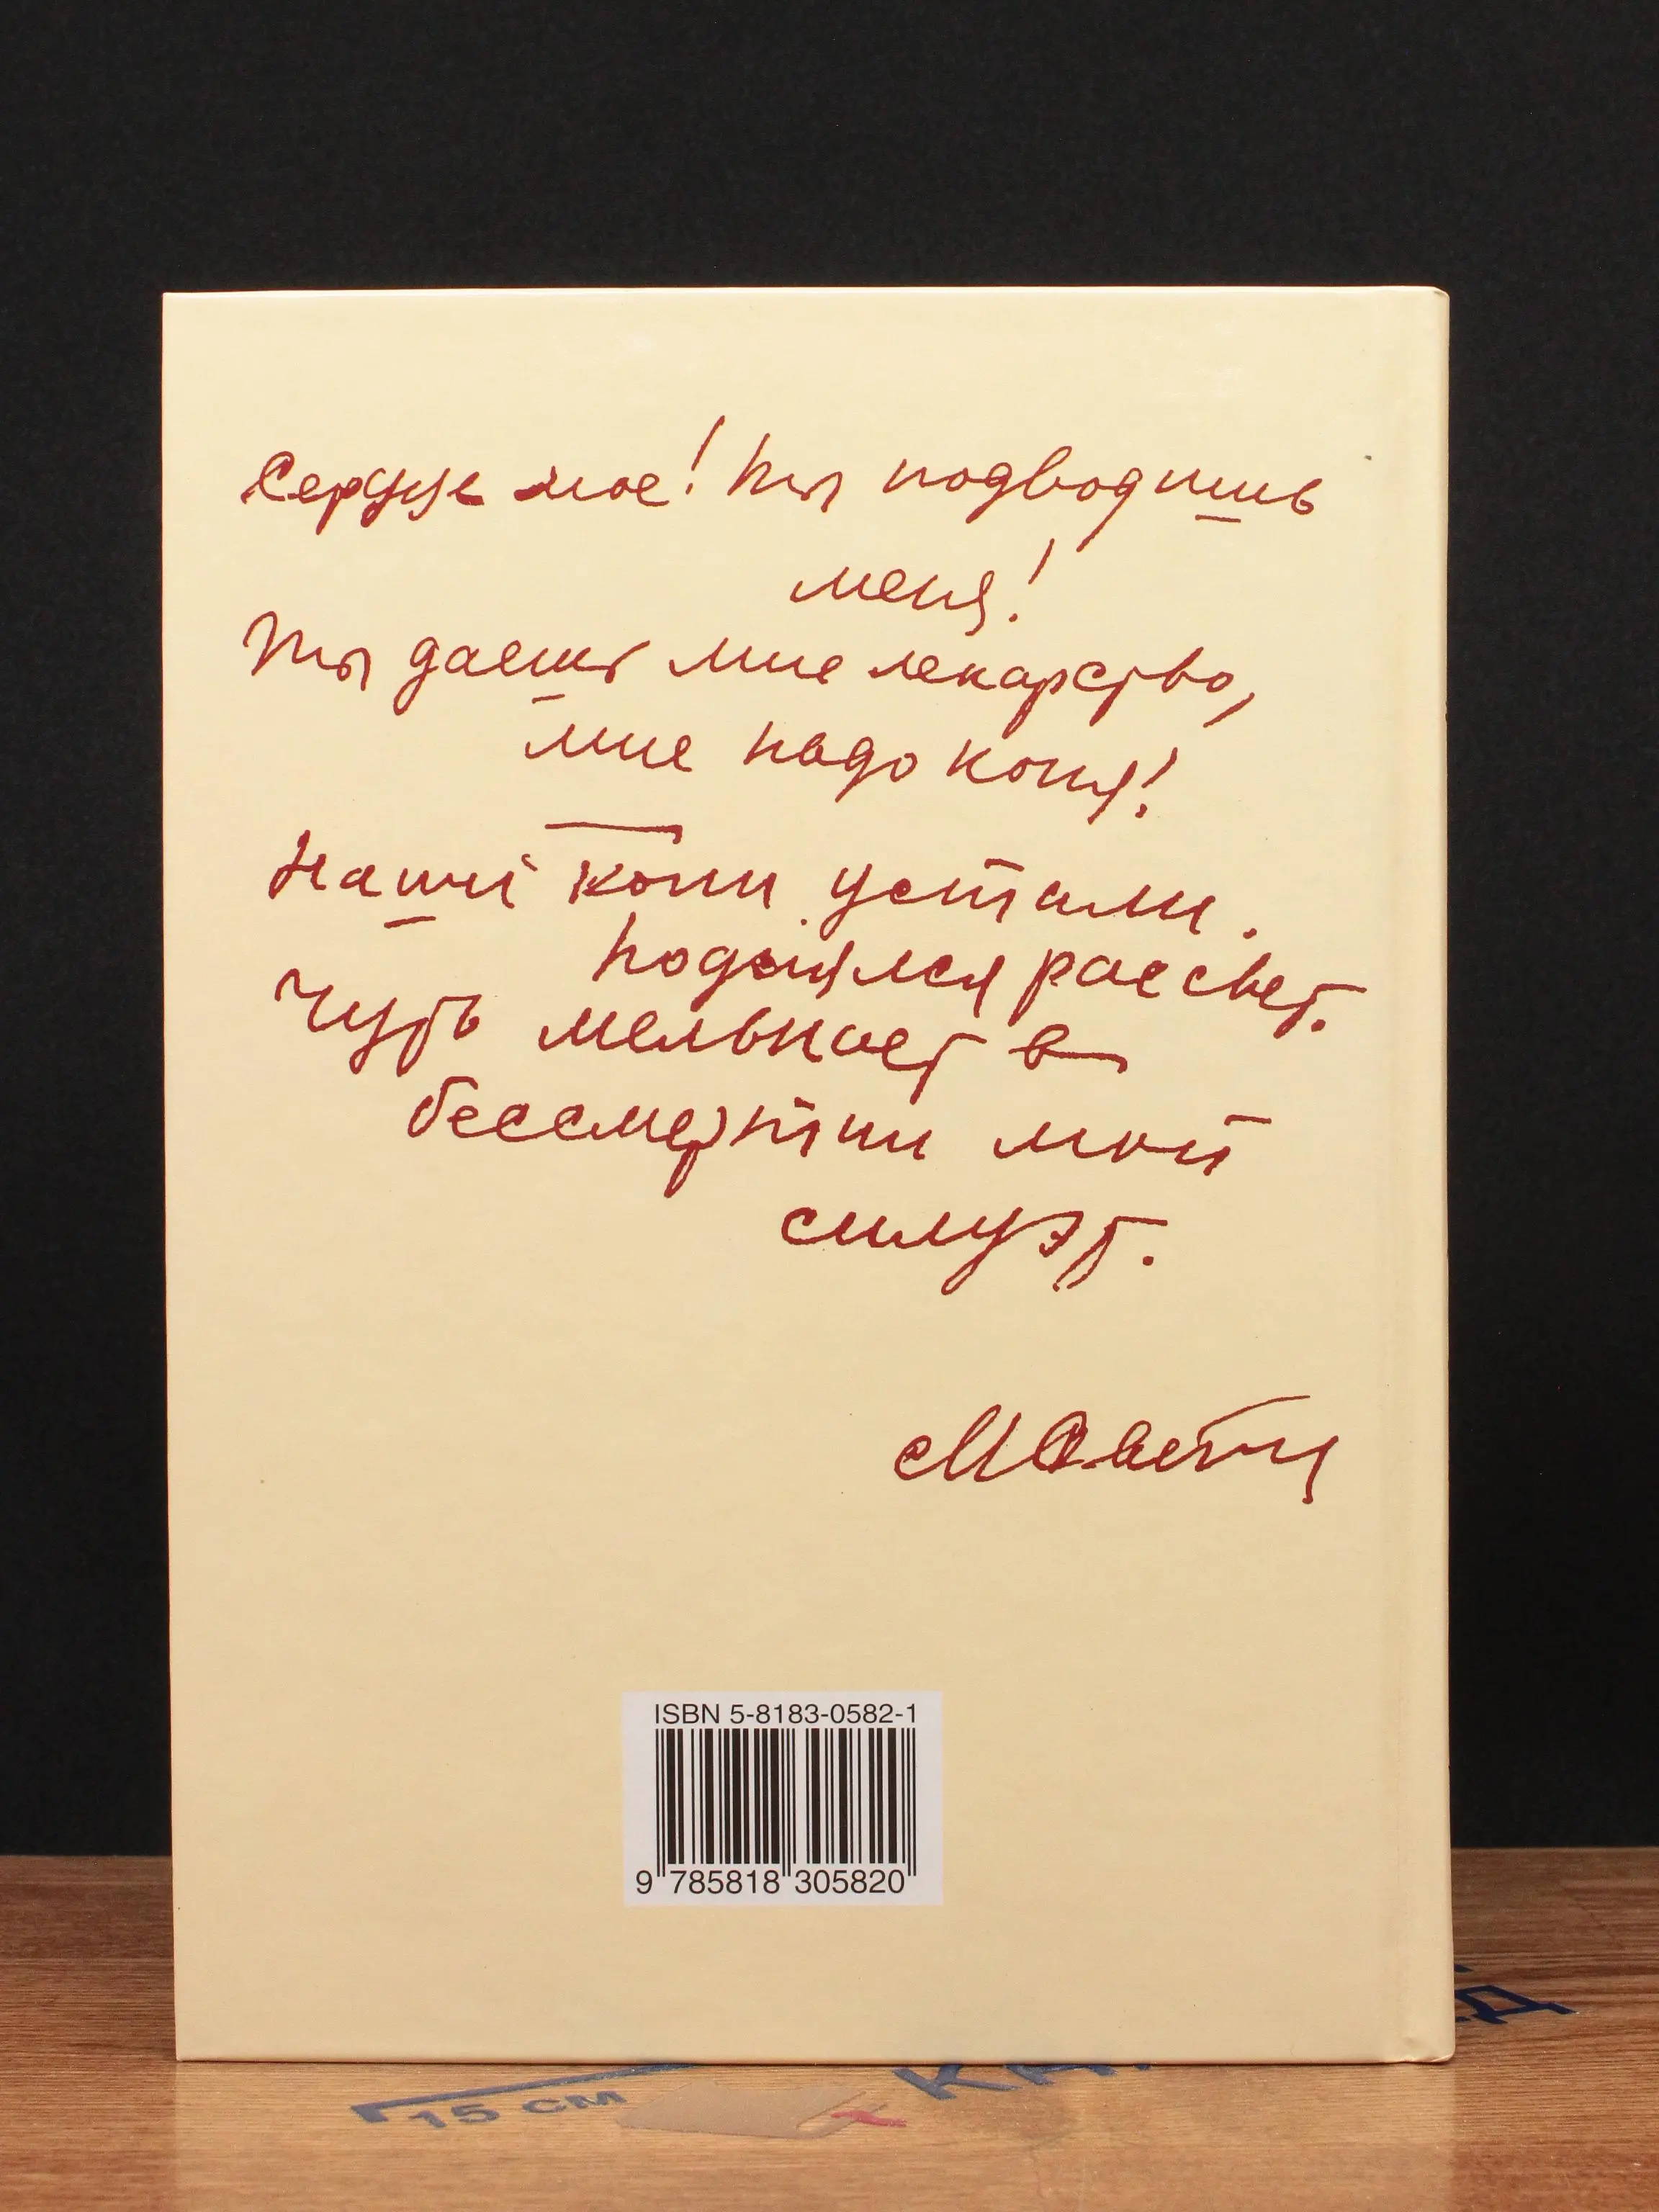 Сердце мое! Ты подводишь
меня!
Ты даешь мне лекарство,
мне надо коня!
Наши кони устали.
Поднялся рассвет.
Чуть мелькает в
бессмертии мой
силуэт.
ISBN 5-8183-0582-1
9 785818 305820
15 СМ